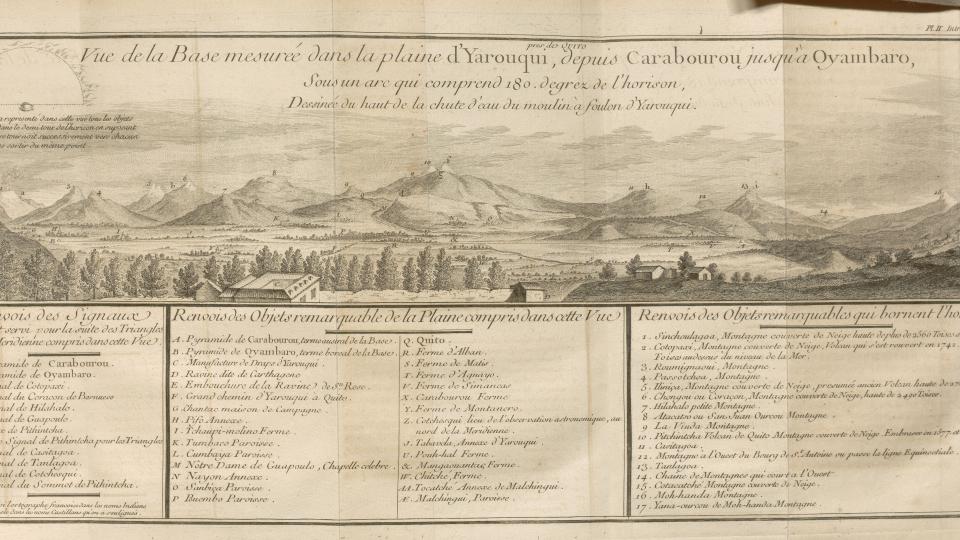 Pl. II
près de QUITO
Vue de la Base mesurée dans la plaine d'Yarouqui, depuis Carabourou jusqu'à Oyambaro,
Sous un arc qui comprend 180. degrez de l'horison,
Dessinée du haut de la chute d'eau du moulin à foulon d'Yarouqui.
represente dans cette vüe tous les objets
dans le demi tour de l'horison en suposant
tournoit successivement vers chacun
sortir du même point
des Signaux
servi pour la suite des Triangles
Meridienne compris dans cette Vüe.
de Carabourou.
de Oyambaro.
de Cotopaxi.
du Coraçon de
de
de Guapoulo.
de Pithintcha
Signal de Pithintcha pour les Triangles
de Casitagoa.
de Tanlagoa.
de Cotchesqui.
du Sommet de Pithintcha.
l'ortographe françoise dans les noms Indiens
dans les noms Castillans qu'on a soulignés.
Renvois des Objets remarquable de la Plaine compris dans cette Vüe
A. Pyramide de Carabourou, terme austral de la Base.
B. Pyramide de Oyambaro, terme boreal de la Base.
C. Manufacture de Draps d'Yarouqui.
D. Ravine dite de Carthageno
E. Embouchure de la Ravine de Ste. Rose.
F. Grand chemin d'Yarouqui à Quito.
G. Chantac maison de Campagne.
H. Pifo Annexe.
I. Tchaupi-molino Ferme
K. Tumbaco Paroisse.
L. Cumbaya Paroisse.
M Notre Dame de Guapoulo, Chapelle celebre.
N Nayon Annexe.
O. Sanbiza Paroisse.
P Puembo Paroisse.
Q. Quito.
R. Ferme d'Alban.
S. Ferme de Matis.
T. Ferme d'Aguayo.
V. Ferme de Simancas
X. Carabourou Ferme
Y. Ferme de Montanero.
Z. Cotchesqui lieu de l'observation astronomique, au
nord de la Meridienne.
J. Tabavela, Annexe d'Yarouqui.
U. Ferme.
&. Mangaouantac Ferme.
W. Chitché, Ferme.
AA. Tocatché Annexe de Malchingui.
Æ. Malchingui, Paroisse.
Renvois des Objets remarquables qui bornent
1. Sinchoulagoa, Montagne couverte de Neige haute de plus de 2560 Toises
2. Cotopaxi, Montagne couverte de Neige, Volcan qui s'est rouvert en 1742.
Toises au dessus du niveau de la Mer.
3. Roumignaoui, Montagne.
4. Passotchoa, Montagne.
5. Iliniça, Montagne couverte de Neige, presumée ancien Volcan haute de
6. Chongou ou Coraçon, Montagne couverte de Neige, haute de 2400 Toises.
7. Hilahalo petite Montagne.
8. Atacatso ou San Juan Ourcou Montagne.
9. La Viuda Montagne.
10. Pitchintcha Volcan de Quito Montagne couverte de Neige. Embrasée en 1577. et
11. Casitagoa.
12. Montagne à l'Ouest du Bourg de St. Antoine ou passe la ligne Equinoctiale.
13. Tanlagoa.
14. Chaine de Montagnes qui court a l'Ouest
15. Cotacatché Montagne couverte de Neige.
16. Moh-handa Montagne.
17. Yana-ourcou de Moh-handa Montagne.